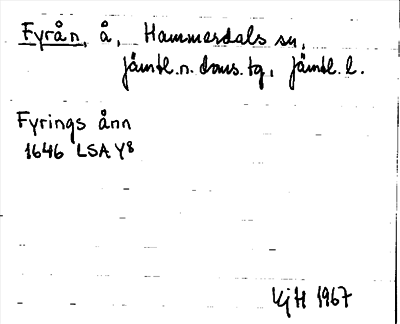 Fyrån, å, Hammerdals sn,
Jämtl. n. doms. tg, Jämtl. l.
Fyrings ånn
1646 LSA Y8
KjH 1967